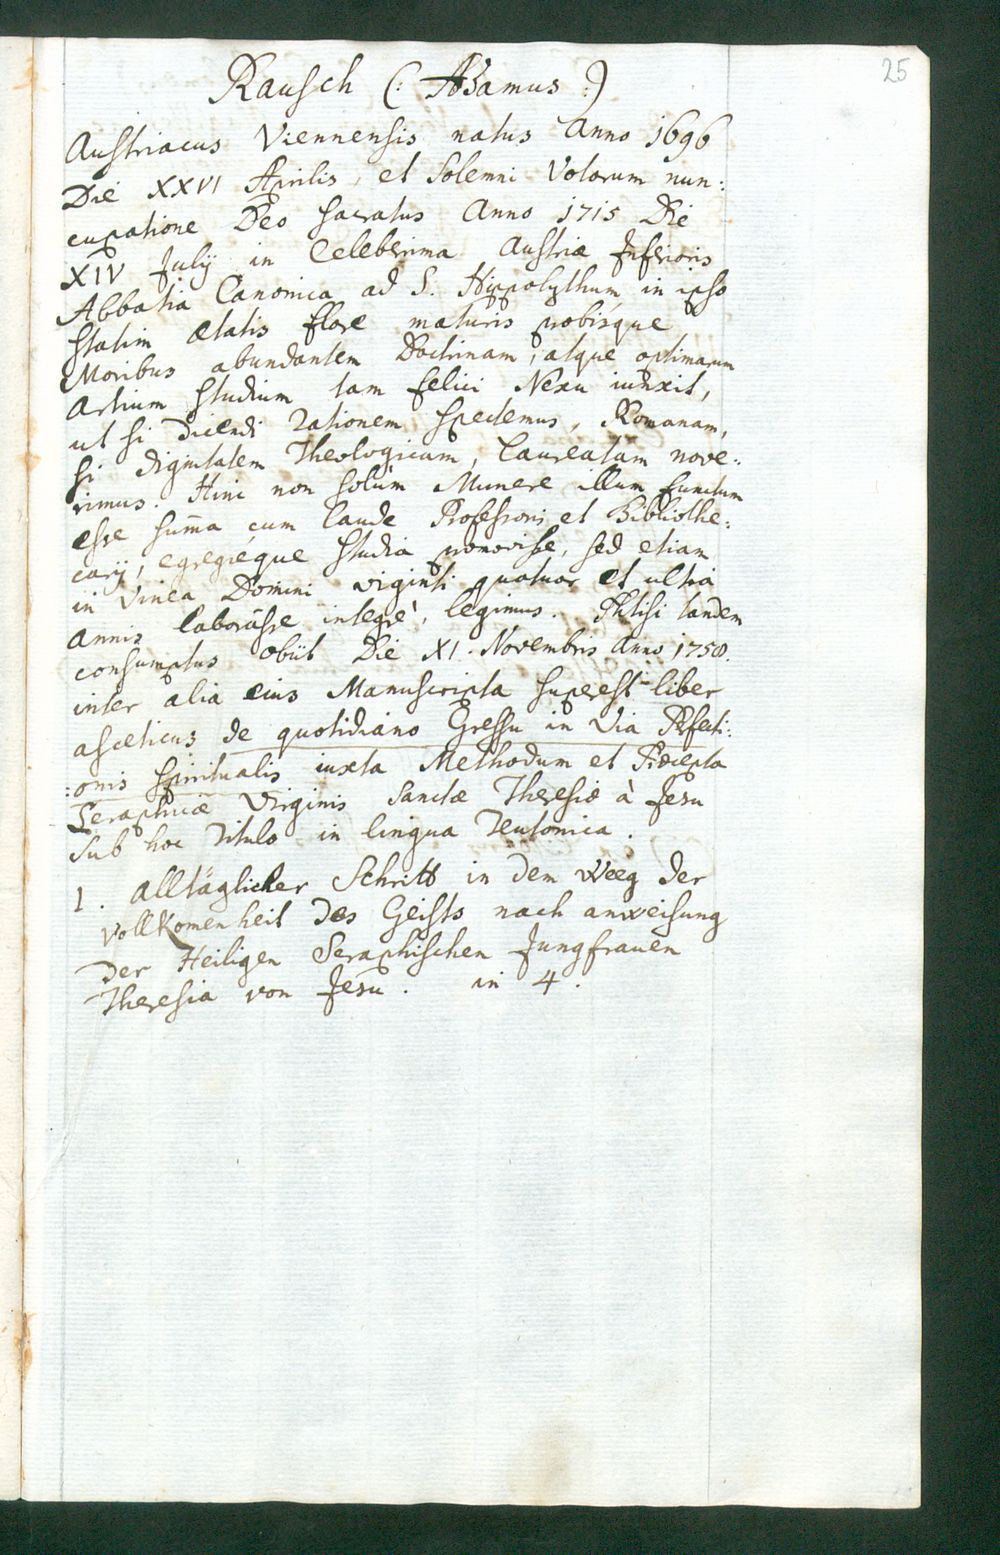 25
Rausch (: Adamus :)
Austriacus Viennensis natus Anno 1696
Die XXVI Aprilis, et Solemni Votorum nun:
cupatione Deo sacratus Anno 1715 Die
XIV Julij in Celeberima Austriæ Inferioris
Abbatia Canonica ad S. Hippolythum, in ipso
statim ætatis flore maturis probisque
Moribus abundantem Doctrinam, atque optimarum
Artium studium tam felici Nexu iunxit,
ut si dicendi rationem spectemus, Romanam,
si dignitatem Theologicam, Laureatam nove:
rimus. Hinc non solùm Munere illum functum
esse sum̃a cum laude Professoris et Bibliothe:
carij, egregiéque studia promovisse, sed etiam
in Vinea Domini viginti quatuor et ultra
annis laborâsse integrè, legimus. Phtisi tandem
consumptus obiit Die XI. Novembris Anno 1750.
inter alia eius Manuscripta superest liber
asceticus de quotidiano Gressu in Via Perfecti:
:onis spiritualis iuxta Methodum et Præcepta
Seraphicæ Virginis Sanctæ Theresiæ à Jesu
sub hoc titulo in lingua Teutonica.
1. Alltäglicher Schritt in dem Weeg der
vollkomenheit des Geists nach anweisung
der Heiligen Seraphischen Jungfrauen
Theresia von Jesu. in 4.